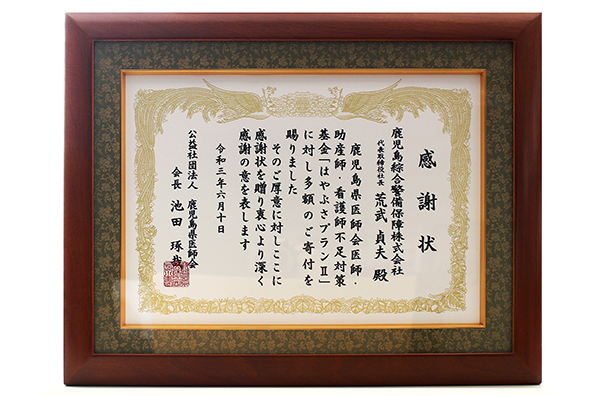 感謝状
鹿児島綜合警備保障株式会社
代表取締役社長 荒武貞夫 殿
鹿児島県医師会医師・
助産師・看護師不足対策
基金「はやぶさプランⅡ」
に対し多額のご寄付を
賜りました
そのご厚意に対しここに
感謝状を贈り衷心より深く
感謝の意を表します
令和三年六月十日
公益社団法人 鹿児島県医師会
会長 池田琢哉